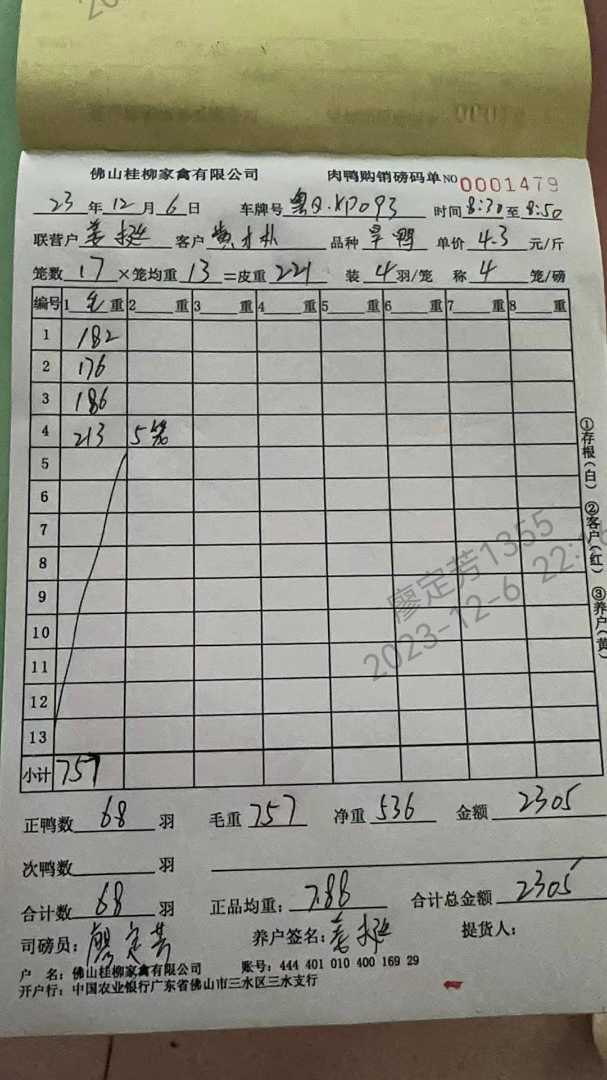 佛山桂柳家禽有限公司 肉鸭购销磅码单 NO 0001479
23 年 12 月 6 日 车牌号 粤Q·XP093 时间 8:30 至 8:50
联营户 姜挺 客户 黄才朴 品种 旱鸭 单价 4.3 元/斤
笼数 17 ×笼均重 13 =皮重 221 装 4 羽/笼 称 4 笼/磅
编号 1 毛 重 2 重 3 重 4 重 5 重 6 重 7 重 8 重
1 182
2 176
3 186
4 213 5笼
5
6
7
8
9
10
11
12
13
小计 757
①存根(白) ②客户(红) ③养户(黄)
廖定芳1355
2023-12-6 22:16
正鸭数 68 羽 毛重 757 净重 536 金额 2305
次鸭数 羽
合计数 68 羽 正品均重: 7.88 合计总金额 2305
司磅员: 廖定芳 养户签名: 姜挺 提货人:
户 名: 佛山桂柳家禽有限公司 账号: 444 401 010 400 169 29
开户行: 中国农业银行广东省佛山市三水区三水支行